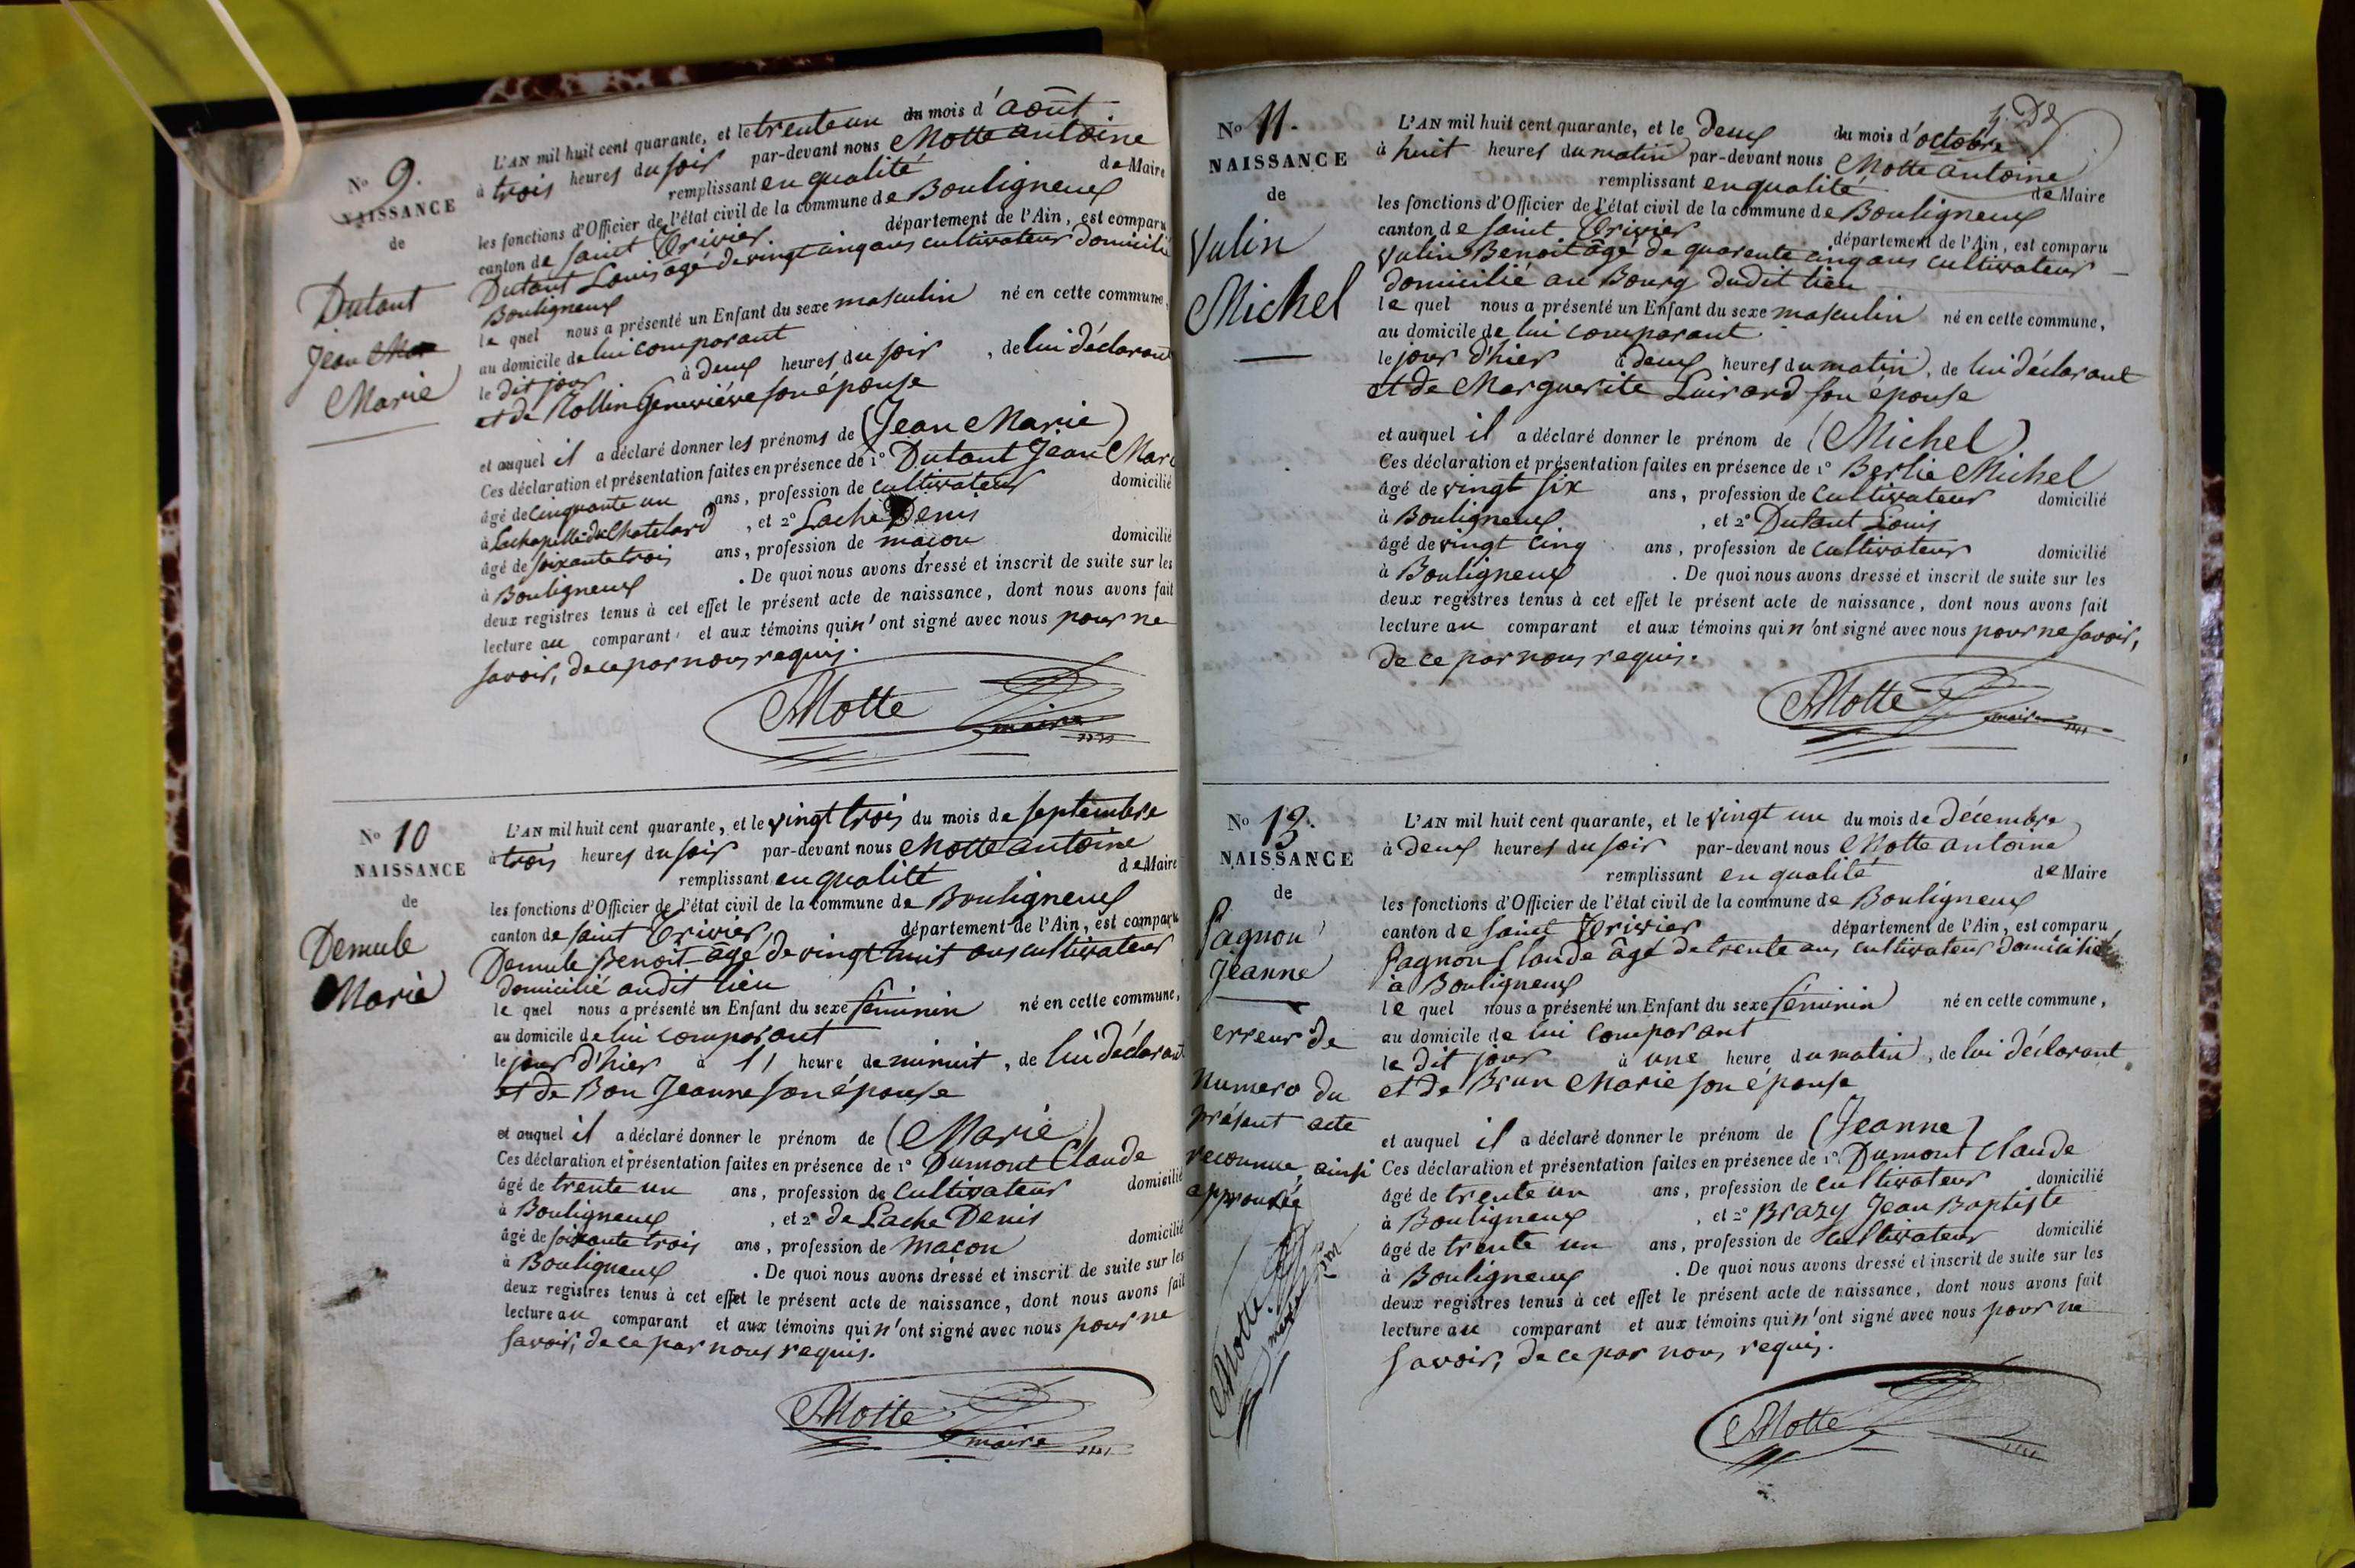 N° 9.
NAISSANCE
de
Dutant
Jean
Marie
L'AN mil huit cent quarante, et le trente un du mois d'août
à trois heures du soir par-devant nous Motte antoine
remplissant en qualité de Maire
les fonctions d'Officier de l'état civil de la commune de Bouligneux
canton de saint Trivier. département de l'Ain, est comparu
Dutant Louis âgé de vingt cinq ans cultivateur domicilié
Bouligneux
le quel nous a présenté un Enfant du sexe masculin né en cette commune,
au domicile de lui comparant
le dit jour à deux heures du soir, de lui déclarant
et de Rollin Geneviève son épouse
et auquel il a déclaré donner les prénoms de (Jean Marie)
Ces déclaration et présentation faites en présence de 1° Dutant Jean Marie
âgé de cinquante un ans, profession de cultivateur domicilié
à Lachapelle du Chatelard, et 2° Lache Denis
âgé de soixante trois ans, profession de maçon domicilié
à Bouligneux. De quoi nous avons dressé et inscrit de suite sur les
deux registres tenus à cet effet le présent acte de naissance, dont nous avons fait
lecture au comparant et aux témoins qui n'ont signé avec nous pour ne
savoir, de ce par nous requis.
Motte maire
N° 10
NAISSANCE
de
Demule
Marie
L'AN mil huit cent quarante, et le vingt trois du mois de septembre
à trois heures du soir par-devant nous Motte antoine
remplissant en qualité de Maire
les fonctions d'Officier de l'état civil de la commune de Bouligneux
canton de saint Trivier, département de l'Ain, est comparu
Demule Benoit âgé de vingt huit ans cultivateur
domicilié audit lieu
le quel nous a présenté un Enfant du sexe féminin né en cette commune,
au domicile de lui comparant
le jour d'hier à 11 heure de minuit, de lui déclarant
et de Bon Jeanne son épouse
et auquel il a déclaré donner le prénom de (Marie)
Ces déclaration et présentation faites en présence de 1° Dumont Claude
âgé de trente un ans, profession de cultivateur domicilié
à Bouligneux, et 2° de Lache Denis
âgé de soixante trois ans, profession de maçon domicilié
à Bouligneux. De quoi nous avons dressé et inscrit de suite sur les
deux registres tenus à cet effet le présent acte de naissance, dont nous avons fait
lecture au comparant et aux témoins qui n'ont signé avec nous pour ne
savoir, de ce par nous requis.
Motte maire
N° 11.
NAISSANCE
de
Vulin
Michel
L'AN mil huit cent quarante, et le deux du mois d'octobre
à huit heures du matin par-devant nous Motte antoine
remplissant en qualité de Maire
les fonctions d'Officier de l'état civil de la commune de Bouligneux
canton de saint Trivier département de l'Ain, est comparu
Vulin Benoit âgé de quarente cinq ans cultivateur
domicilié au Bourg dudit lieu
le quel nous a présenté un Enfant du sexe masculin né en cette commune,
au domicile de lui comparant
le jour d'hier à deux heures du matin, de lui déclarant
et de Marguerite Luirard son épouse
et auquel il a déclaré donner le prénom de (Michel)
Ces déclaration et présentation faites en présence de 1° Berlie Michel
âgé de vingt six ans, profession de cultivateur domicilié
à Bouligneux, et 2° Dutant Louis
âgé de vingt cinq ans, profession de cultivateur domicilié
à Bouligneux. De quoi nous avons dressé et inscrit de suite sur les
deux registres tenus à cet effet le présent acte de naissance, dont nous avons fait
lecture au comparant et aux témoins qui n'ont signé avec nous pour ne savoir,
de ce par nous requis.
Motte maire
N° 13.
NAISSANCE
de
Pagnon
Jeanne
erreur de
numero du
présent acte
reconnue ainsi
approuvée
Motte maire
L'AN mil huit cent quarante, et le vingt un du mois de décembre
à deux heures du soir par-devant nous Motte antoine
remplissant en qualité de Maire
les fonctions d'Officier de l'état civil de la commune de Bouligneux
canton de saint Trivier département de l'Ain, est comparu
Pagnon Claude âgé de trente ans cultivateur domicilié
à Bouligneux
le quel nous a présenté un Enfant du sexe féminin né en cette commune,
au domicile de lui comparant
le dit jour à une heure du matin, de lui déclarant
et de Brun Marie son épouse
et auquel il a déclaré donner le prénom de (Jeanne)
Ces déclaration et présentation faites en présence de 1° Dumont Claude
âgé de trente un ans, profession de cultivateur domicilié
à Bouligneux, et 2° Brazy Jean Baptiste
âgé de trente un ans, profession de cultivateur domicilié
à Bouligneux. De quoi nous avons dressé et inscrit de suite sur les
deux registres tenus à cet effet le présent acte de naissance, dont nous avons fait
lecture au comparant et aux témoins qui n'ont signé avec nous pour ne
savoir, de ce par nous requis.
Motte